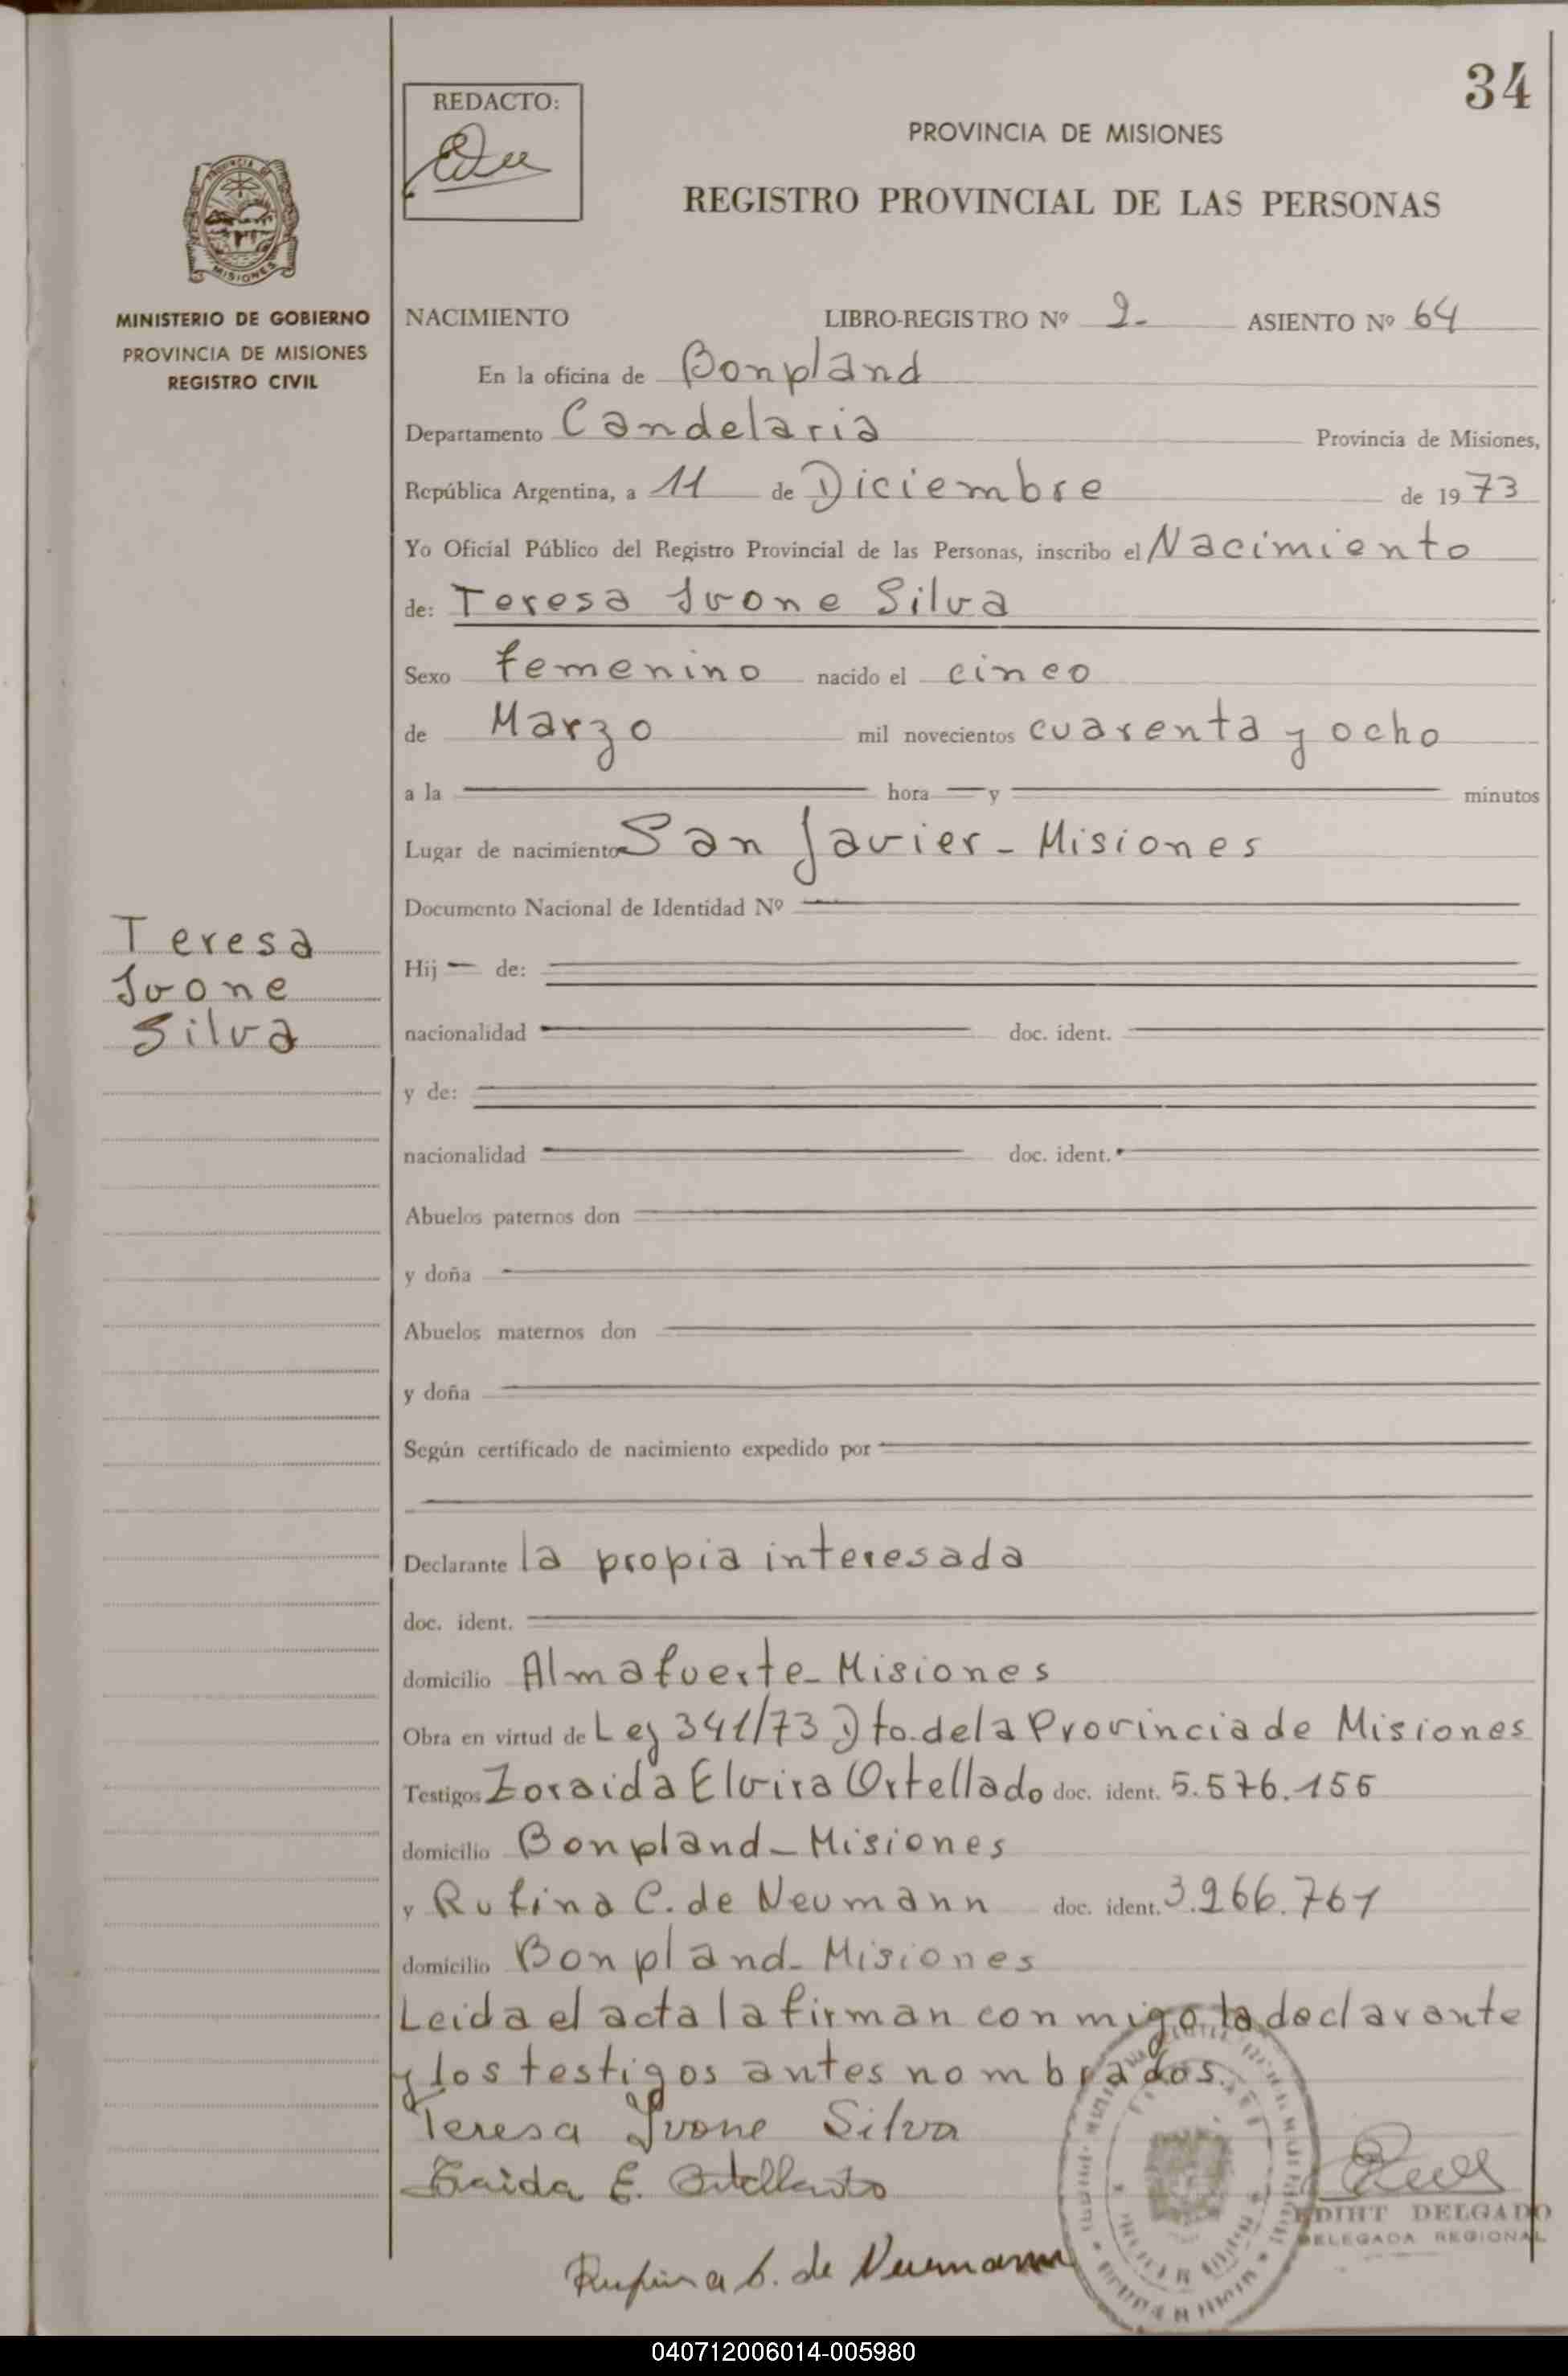 34
REDACTO:
PROVINCIA DE MISIONES
REGISTRO PROVINCIAL DE LAS PERSONAS
MISIONES
MINISTERIO DE GOBIERNO
PROVINCIA DE MISIONES
REGISTRO CIVIL
NACIMIENTO LIBRO-REGISTRO Nº 2- ASIENTO Nº 64
En la oficina de Bonpland
Departamento Candelaria Provincia de Misiones,
República Argentina, a 11 de Diciembre de 1973
Yo Oficial Público del Registro Provincial de las Personas, inscribo el Nacimiento
de: Teresa Ivone Silva
Sexo femenino nacido el cinco
de Marzo mil novecientos cuarenta y ocho
a la hora y minutos
Lugar de nacimiento San Javier - Misiones
Documento Nacional de Identidad Nº
Teresa
Ivone
Silva
Hij de:
nacionalidad doc. ident.
y de:
nacionalidad doc. ident.
Abuelos paternos don
y doña
Abuelos maternos don
y doña
Según certificado de nacimiento expedido por
Declarante la propia interesada
doc. ident.
domicilio Almafuerte - Misiones
Obra en virtud de Ley 341/73 Dto. de la Provincia de Misiones
Testigos Zoraida Elvira Ortellado doc. ident. 5.576.156
domicilio Bonpland - Misiones
y Rufina C. de Neumann doc. ident. 3.266.761
domicilio Bonpland - Misiones
Leida el acta la firman con migo la declarante
y los testigos antes nombrados.
Teresa Ivone Silva
E. Ortellado
Rufina C. de Neumann
EDIHT DELGADO
DELEGADA REGIONAL
040712006014-005980